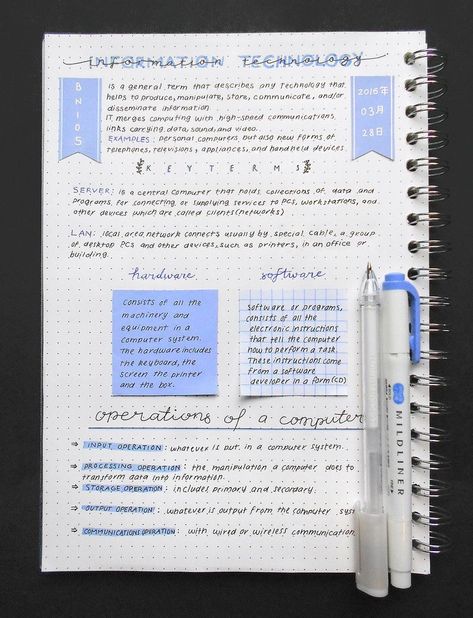 INFORMATION TECHNOLOGY
information technology
2016年
03月
28日
IS A GENERAL TERM THAT DESCRIBES ANY TECHNOLOGY THAT
HELPS TO PRODUCE, MANIPULATE, STORE, COMMUNICATE, AND/OR
DISSEMINATE INFORMATION
IT MERGES COMPUTING WITH HIGH-SPEED COMMUNICATIONS
LINKS CARRYING DATA, SOUND, AND VIDEO.
EXAMPLES: PERSONAL COMPUTERS BUT ALSO NEW FORMS OF
TELEPHONES, TELEVISIONS, APPLIANCES, AND HANDHELD DEVICES
KEYTERMS
SERVER: IS A CENTRAL COMPUTER THAT HOLDS COLLECTIONS OF DATA AND
PROGRAMS, FOR CONNECTING OR SUPPLYING SERVICES TO PCS, WORKSTATIONS, AND
OTHER DEVICES WHICH ARE CALLED CLIENTS (NETWORKS)
LAN: LOCAL AREA NETWORK CONNECTS USUALLY BY SPECIAL CABLE, A GROUP
OF DESKTOP PCS AND OTHER DEVICES, SUCH AS PRINTERS, IN AN OFFICE OR
BUILDING.
hardware
CONSISTS OF ALL THE
MACHINERY AND
EQUIPMENT IN A
COMPUTER SYSTEM.
THE HARDWARE INCLUDES
THE KEYBOARD, THE
SCREEN THE PRINTER
AND THE BOX.
software
SOFTWARE OR PROGRAMS,
CONSISTS OF ALL THE
ELECTRONIC INSTRUCTIONS
THAT TELL THE COMPUTER
HOW TO PERFORM A TASK.
THESE INSTRUCTIONS COME
FROM A SOFTWARE
DEVELOPER IN A FORM (CD)
operations of a computer
⇒ INPUT OPERATION: WHATEVER IS PUT IN A COMPUTER SYSTEM.
⇒ PROCESSING OPERATION: THE MANIPULATION A COMPUTER DOES TO
TRANSFORM DATA INTO INFORMATION.
⇒ STORAGE OPERATION: INCLUDES PRIMARY AND SECONDARY.
⇒ OUTPUT OPERATION: WHATEVER IS OUTPUT FROM THE COMPUTER SYS
⇒ COMMUNICATIONS OPERATION: WITH WIRED OR WIRELESS COMMUNICATION
MILDLINER